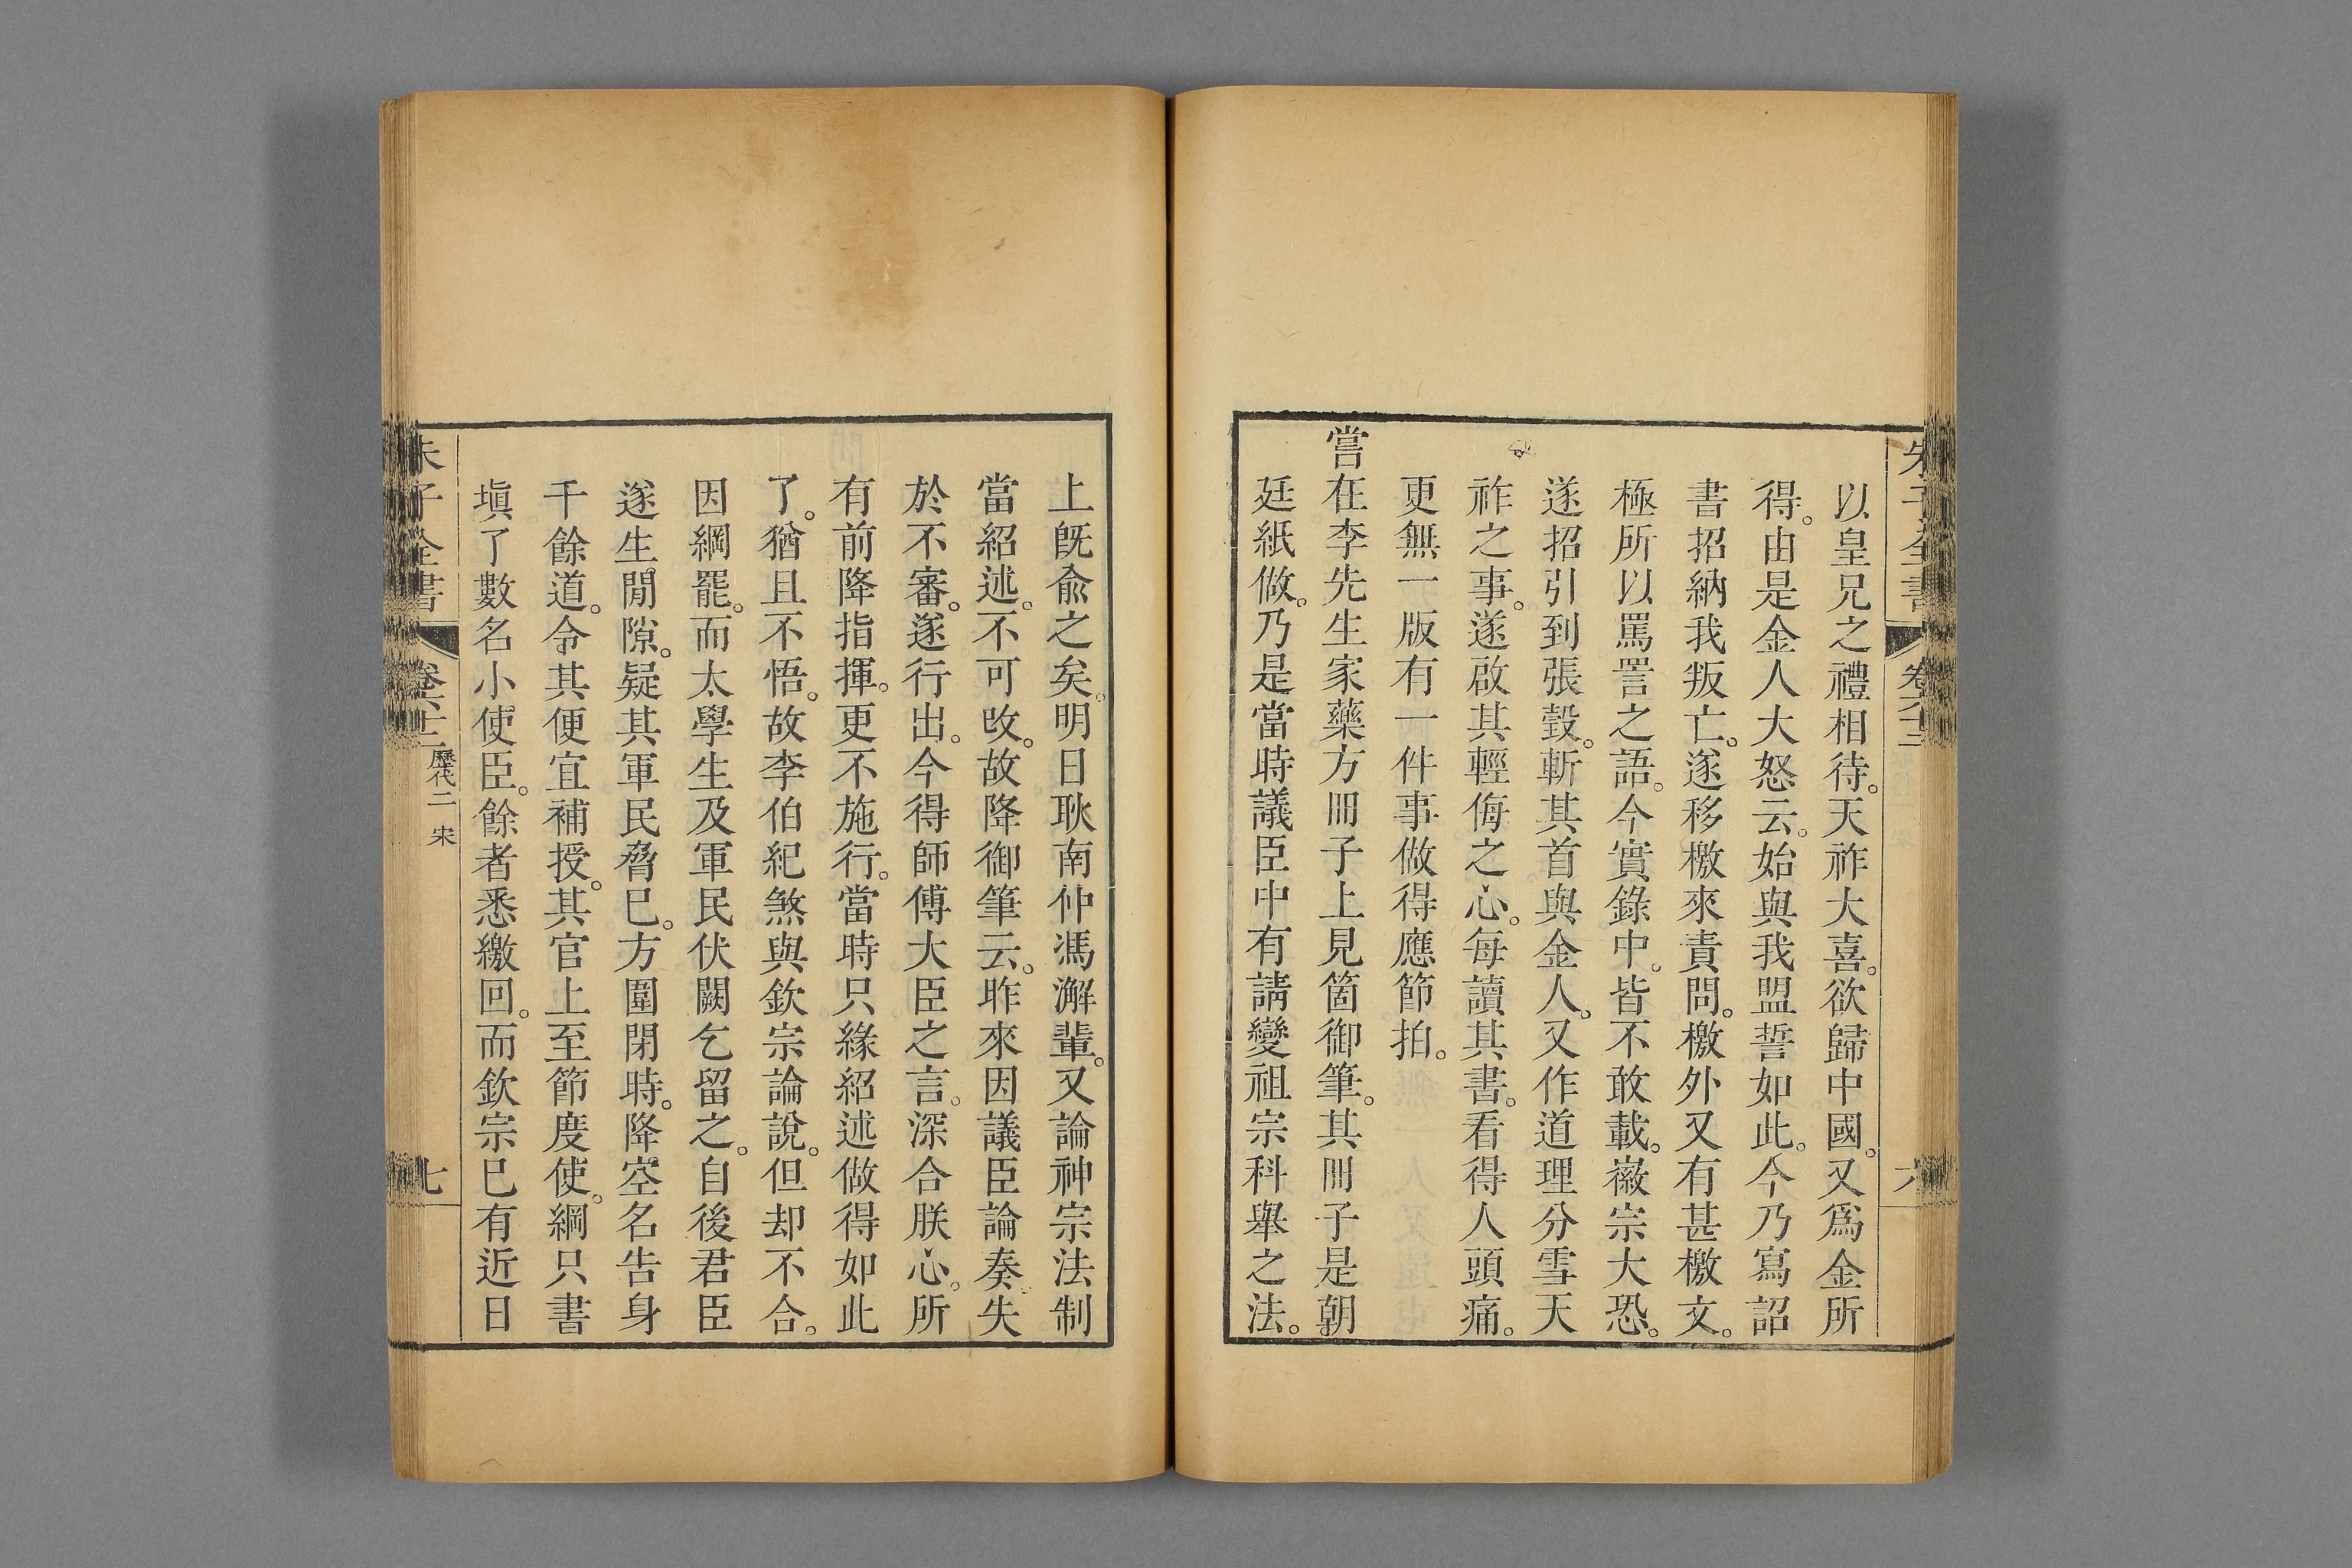 朱子全書
六
以皇兄之禮相待。天祚大喜。欲歸中國。又爲金所
得。由是金人大怒云。始與我盟誓如此。今乃寫詔
書招納我叛亡。遂移檄來責問。檄外又有甚檄文。
極所以罵詈之語。今實錄中。皆不敢載。徽宗大恐。
遂招引到張瑴。斬其首與金人。又作道理分雪天
祚之事。遂啟其輕侮之心。每讀其書。看得人頭痛。
更無一版有一件事做得應節拍。
嘗在李先生家藥方冊子上見箇御筆。其冊子是朝
廷紙做。乃是當時議臣中有請變祖宗科舉之法。
上旣兪之矣。明日耿南仲馮澥輩。又論神宗法制
當紹述。不可改。故降御筆云。昨來因議臣論奏。失
於不審。遂行出。今得師傅大臣之言。深合朕心。所
有前降指揮。更不施行。當時只緣紹述做得如此
了。猶且不悟。故李伯紀煞與欽宗論說。但却不合。
因綱罷。而太學生及軍民伏闕乞留之。自後君臣
遂生閒隙。疑其軍民脅己。方圍閉時。降空名告身
千餘道。令其便宜補授。其官上至節度使。綱只書
塡了數名小使臣。餘者悉繳回。而欽宗已有近日
朱子全書
歷代二 宋
七